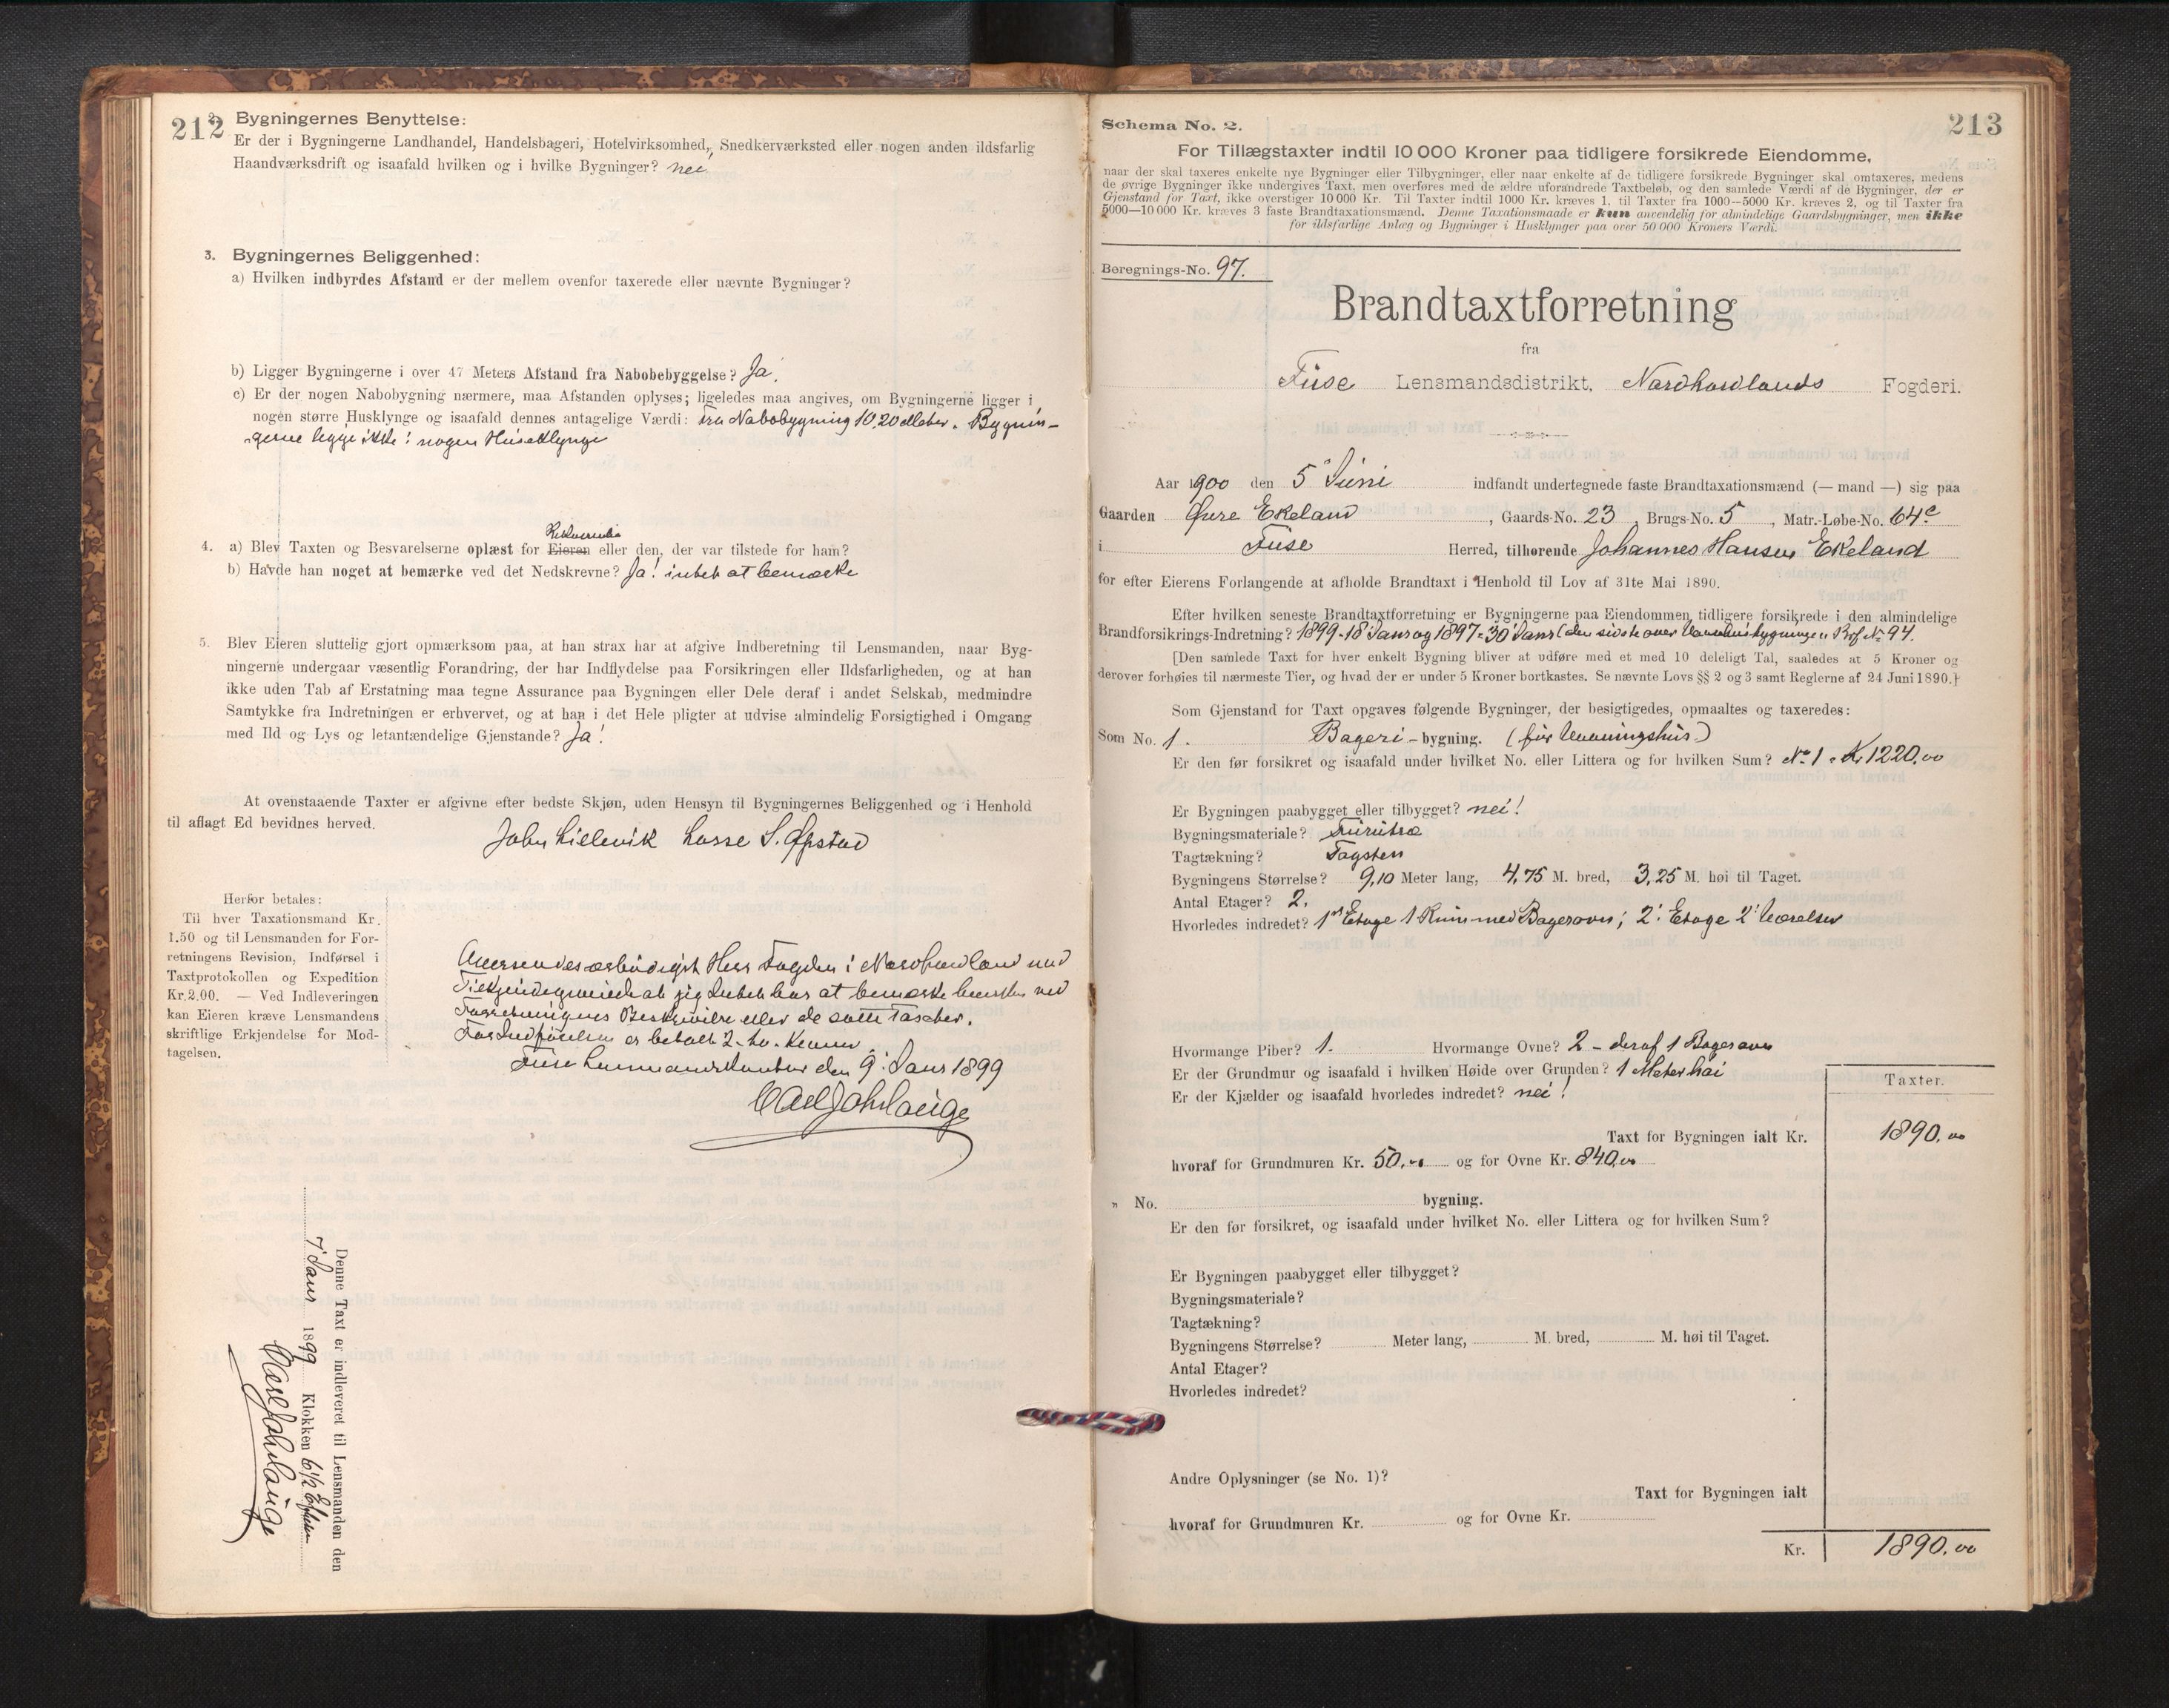 212
2. Bygningernes Benyttelse:
Er der i Bygningerne Landhandel, Handelsbageri, Hotelvirksomhed, Snedkerværksted eller nogen anden ildsfarlig
Haandværksdrift og isaafald hvilken og i hvilke Bygninger? nei
3. Bygningernes Beliggenhed:
a) Hvilken indbyrdes Afstand er der mellem ovenfor taxerede eller nævnte Bygninger?
b) Ligger Bygningerne i over 47 Meters Afstand fra Nabobebyggelse? Ja.
c) Er der nogen Nabobygning nærmere, maa Afstanden oplyses; ligeledes maa angives, om Bygningerne ligger i
nogen større Husklynge og isaafald dennes antagelige Værdi: fra Nabobygning 10,20 Meter. Bygnin-
gerne ligge ikke i nogen Huseklynge
Rekvirenten
4. a) Blev Taxten og Besvarelserne oplæst for Eieren eller den, der var tilstede for ham?
b) Havde han noget at bemærke ved det Nedskrevne? Ja! intet at bemærke
5. Blev Eieren sluttelig gjort opmærksom paa, at han strax har at afgive Indberetning til Lensmanden, naar Byg-
ningerne undergaar væsentlig Forandring, der har Indflydelse paa Forsikringen eller Ildsfarligheden, og at han
ikke uden Tab af Erstatning maa tegne Assurance paa Bygningen eller Dele deraf i andet Selskab, medmindre
Samtykke fra Indretningen er erhvervet, og at han i det Hele pligter at udvise almindelig Forsigtighed i Omgang
med Ild og Lys og letantændelige Gjenstande? Ja!
At ovenstaaende Taxter er afgivne efter bedste Skjøn, uden Hensyn til Bygningernes Beliggenhed og i Henhold
til aflagt Ed bevidnes herved.
John Lillevik Lasse S. Øpstad
Herfor betales:
Til hver Taxationsmand Kr.
1.50 og til Lensmanden for For-
retningens Revision, Indførsel i
Taxtprotokollen og Expedition
Kr. 2.00. — Ved Indleveringen
kan Eieren kræve Lensmandens
skriftlige Erkjendelse for Mod-
tagelsen.
Oversendes ærbødigst Herr Fogden i Nordhordland med
Tilkjendegivende at jeg Intet har at bemærke hverken ved
Forretningens Beskrivelse eller de satte Taxter.
For Indførelsen er betalt 2 - to - Kroner.
Fuse Lensmandskontor den 9' Janr 1899
Carl Joh Lauge
Denne Taxt er indleveret til Lensmanden den
7' Janr 1899 Klokken 6 1/2 Efterm
Carl Joh Lauge
213
Schema No. 2.
For Tillægstaxter indtil 10 000 Kroner paa tidligere forsikrede Eiendomme,
naar der skal taxeres enkelte nye Bygninger eller Tilbygninger, eller naar enkelte af de tidligere forsikrede Bygninger skal omtaxeres, medens
de øvrige Bygninger ikke undergives Taxt, men overføres med de ældre uforandrede Taxtbeløb, og den samlede Værdi af de Bygninger, der er
Gjenstand for Taxt, ikke overstiger 10 000 Kr. Til Taxter indtil 1000 Kr. kræves 1, til Taxter fra 1000—5000 Kr. kræves 2, og til Taxter fra
5000—10 000 Kr. kræves 3 faste Brandtaxationsmænd. Denne Taxationsmaade er kun anvendelig for almindelige Gaardsbygninger, men ikke
for ildsfarlige Anlæg og Bygninger i Husklynger paa over 50 000 Kroners Værdi.
Beregnings-No. 97.
Brandtaxtforretning
fra
Fuse Lensmandsdistrikt, Nordhordlands Fogderi.
Aar 1900 den 5' Juni indfandt undertegnede faste Brandtaxationsmænd (— mand —) sig paa
Gaarden Øvre Ekeland, Gaards-No. 23, Brugs-No. 5, Matr.-Løbe-No. 64c
i Fuse Herred, tilhørende Johannes Hansen Ekeland
for efter Eierens Forlangende at afholde Brandtaxt i Henhold til Lov af 31te Mai 1890.
Efter hvilken seneste Brandtaxtforretning er Bygningerne paa Eiendommen tidligere forsikrede i den almindelige
Brandforsikrings-Indretning? 1899 - 18' Jan og 1897 - 30' Janr (den sidste over Vaanhusbygningen Brf. No 94.
[Den samlede Taxt for hver enkelt Bygning bliver at udføre med et med 10 deleligt Tal, saaledes at 5 Kroner og
derover forhøies til nærmeste Tier, og hvad der er under 5 Kroner bortkastes. Se nævnte Lovs §§ 2 og 3 samt Reglerne af 24 Juni 1890.]
Som Gjenstand for Taxt opgaves følgende Bygninger, der besigtigedes, opmaaltes og taxeredes:
Som No. 1. Bageri-bygning. (før Vaaningshus)
Er den før forsikret og isaafald under hvilket No. eller Littera og for hvilken Sum? No 1 - Kr 1220,00
Er Bygningen paabygget eller tilbygget? nei!
Bygningsmateriale? Furutræ
Tagtækning? Tagsten
Bygningens Størrelse? 9,10 Meter lang, 4,75 M. bred, 3,25 M. høi til Taget.
Antal Etager? 2.
Hvorledes indredet? 1ste Etage 1 Rum med Bagerovn; 2' Etage 2' Værelser
Hvormange Piber? 1. Hvormange Ovne? 2 - deraf 1 Bagerovn
Er der Grundmur og isaafald i hvilken Høide over Grunden? 1 Meter høi
Er der Kjælder og isaafald hvorledes indredet? nei!
Taxter.
Taxt for Bygningen ialt Kr. 1890,00
hvoraf for Grundmuren Kr. 50,00 og for Ovne Kr. 840,00
" No. bygning.
Er den før forsikret, og isaafald under hvilket No. eller Littera og for hvilken Sum?
Er Bygningen paabygget eller tilbygget?
Bygningsmateriale?
Tagtækning?
Bygningens Størrelse? Meter lang, M. bred, M. høi til Taget.
Antal Etager?
Hvorledes indredet?
Andre Oplysninger (se No. 1)?
Taxt for Bygningen ialt
hvoraf for Grundmuren Kr. og for Ovne Kr.
Kr. 1890,00